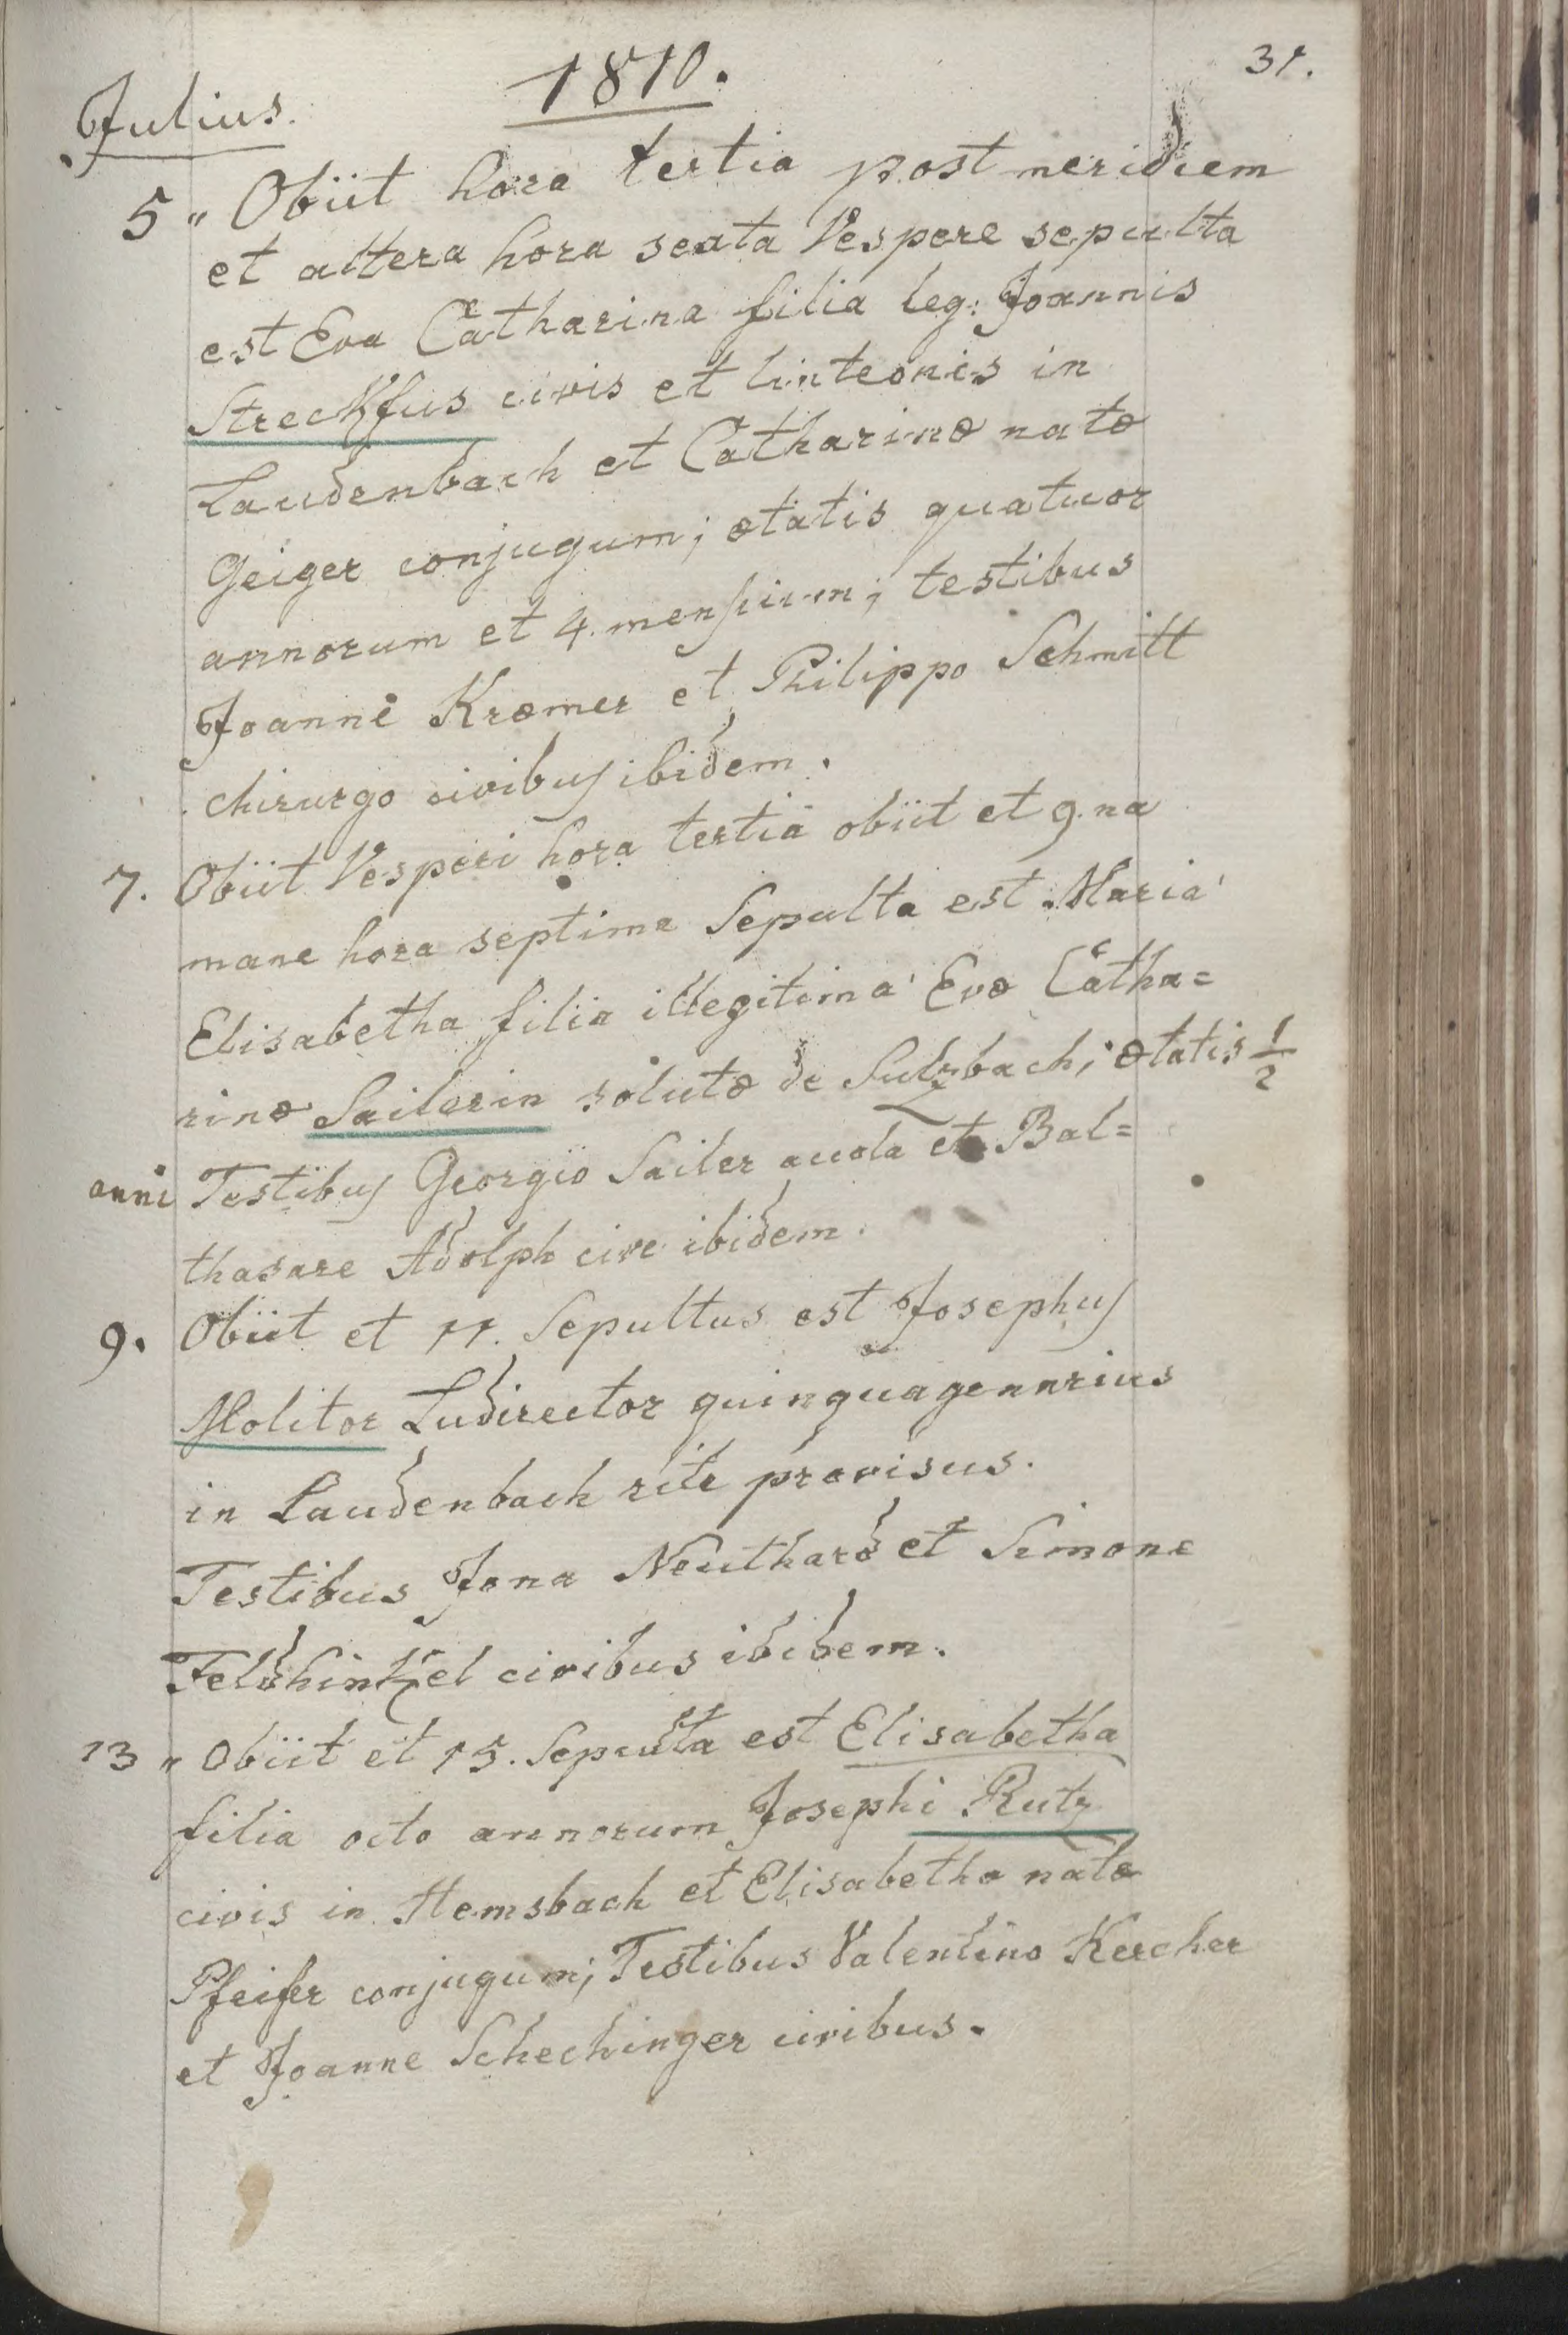 1810.
31.
Julius.
5 " Obiit hora tertia post meridiem
et altera hora sexta Vespere sepulta
est Eva Catharina filia leg: Joannis
Streckfus civis et linteonis in
Laudenbach et Catharinæ natæ
Geiger conjugum; ætatis quatuor
annorum et 4. mensium; testibus
Joanne Kræmer et Philippo Schmitt
chirurgo civibus ibidem.
7. Obiit Vesperi hora tertia obiit et 9.na
mane hora septima Sepulta est Maria
Elisabetha filia illegitima Evæ Catha=
rinæ Sailerin solutæ de Sulzbach; ætatis 1/2
anni Testibus Georgio Sailer avola et Bal=
thasare Adolph cive ibidem.
9. Obiit et 11. Sepultus est Josephus
Molitor Ludirector quinquagenarius
in Laudenbach rite provisus.
Testibus Jona Neuthard et Simone
Feldhintzel civibus ibidem.
13 " Obiit et 15. Sepulta est Elisabetha
filia octo annorum Josephi Rutz
civis in Hemsbach et Elisabethæ natæ
Pfeifer conjugum; Testibus Valentino Kercher
et Joanne Schechinger civibus.